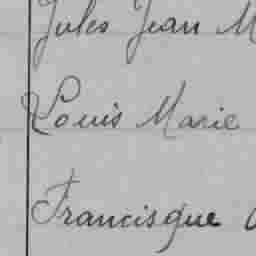 Jules Jean M
Louis Marie
Francisque